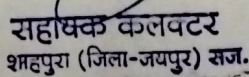 सहायक कलक्टर
शाहपुरा (जिला-जयपुर) राज